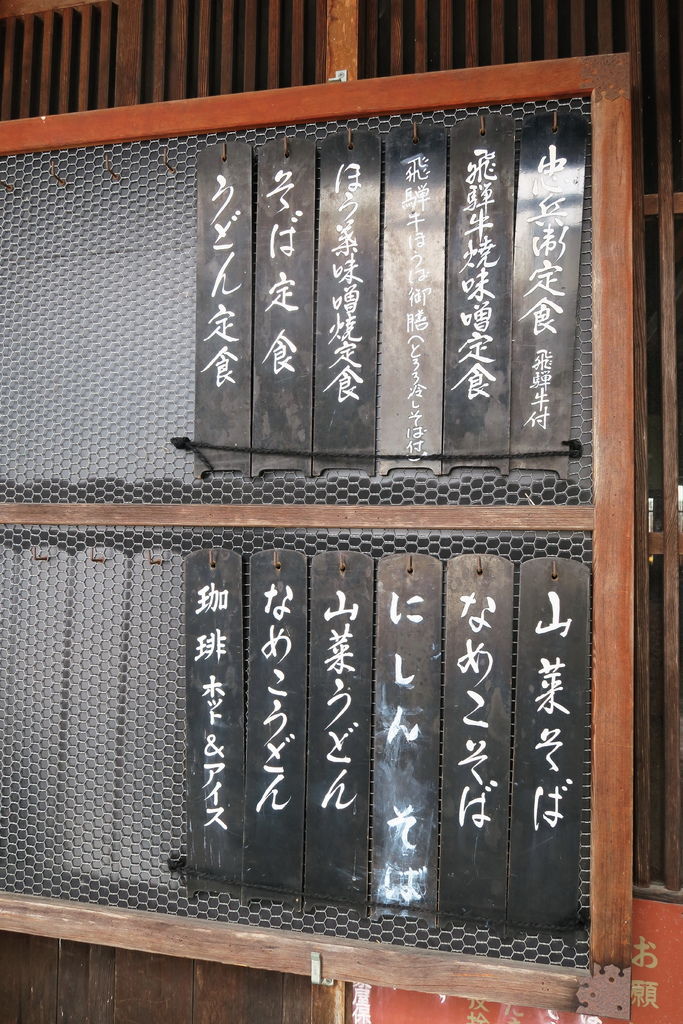 忠兵衛定食(飛騨牛付
飛騨牛焼味噌定食
飛騨牛ほうば御膳(とろろ冷しそば付)
ほう葉味噌焼定食
そば定食
うどん定食
山菜そば
なめこそば
にしんそば
山菜うどん
なめこうどん
珈琲 ホット&アイス
お願